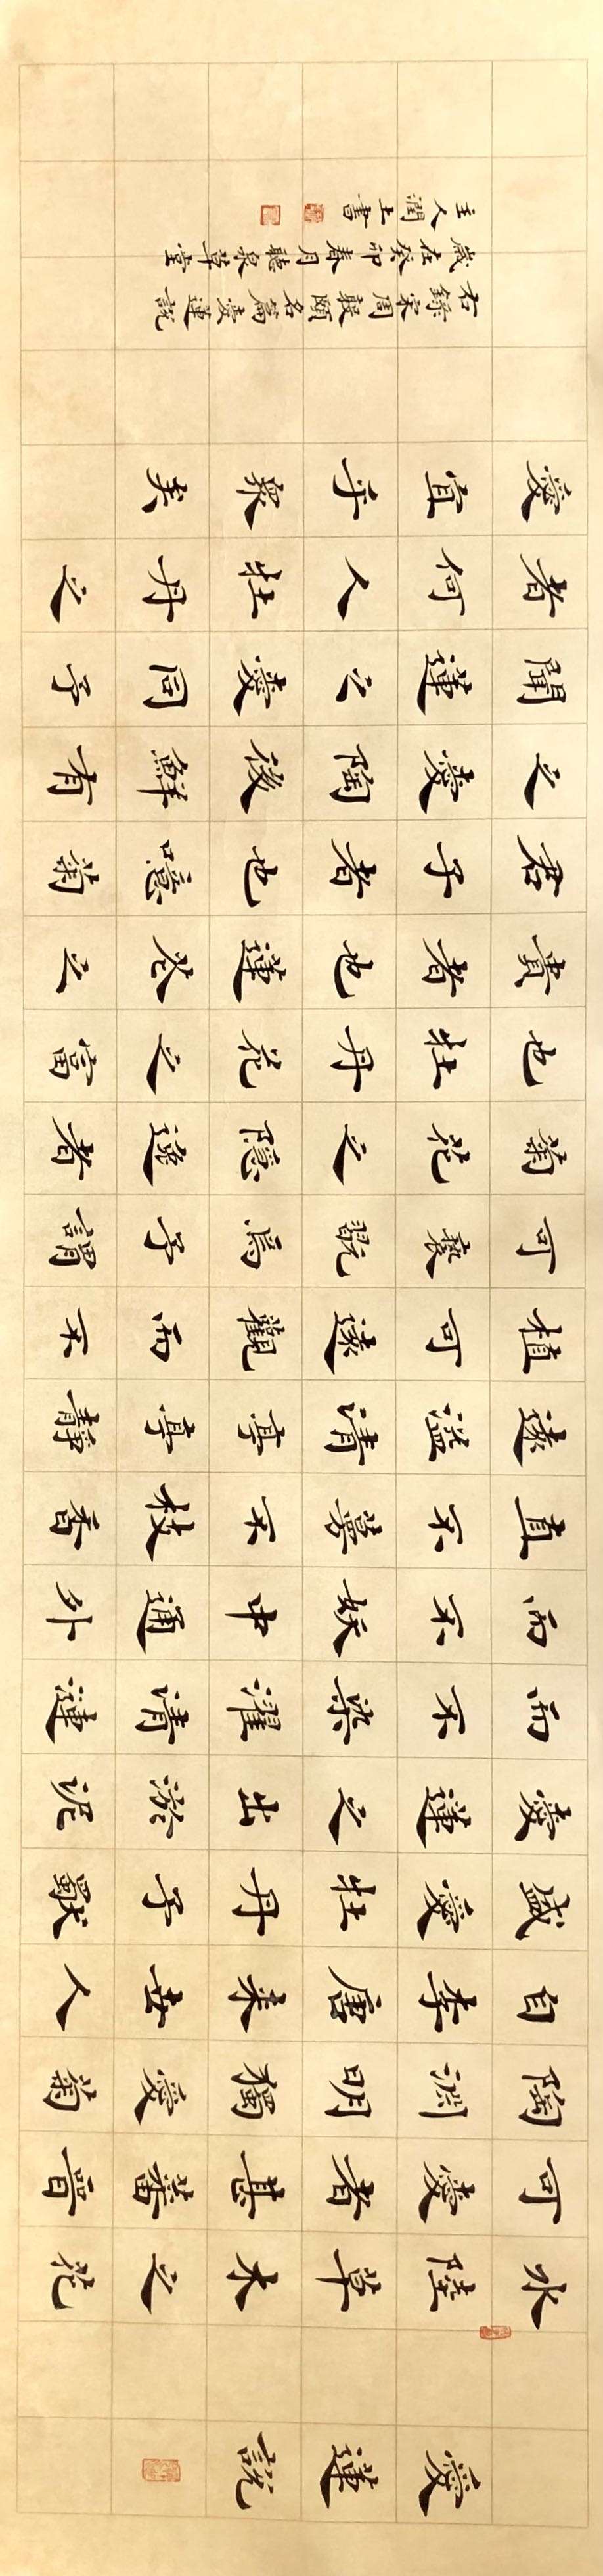 愛蓮說
水陸草木之花
可愛者甚蕃晉
陶淵明獨愛菊
自李唐來世人
盛愛牡丹予獨
愛蓮之出淤泥
而不染濯清漣
而不妖中通外
直不蔓不枝香
遠溢清亭亭靜
植可遠觀而不
可褻翫焉予謂
菊花之隱逸者
也牡丹花之富
貴者也蓮花之
君子者也噫菊
之愛陶後鮮有
聞蓮之愛同予
者何人牡丹之
愛宜乎眾矣
右錄宋周敦頤名篇愛蓮說
歲在癸卯春月聽泉草堂
主人潤上書